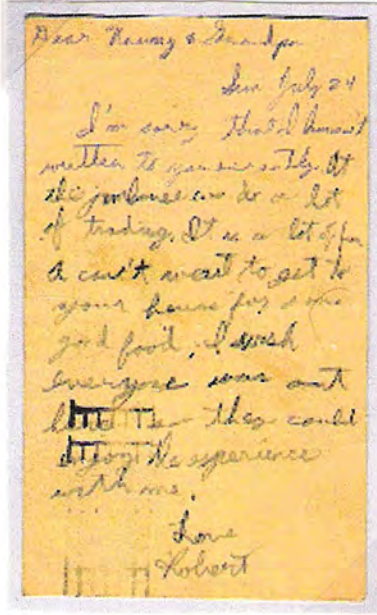 Dear Nanny & Grandpa
Sun July 24
I'm sorry that I haven't
written to you recently. At
the jamboree we do a lot
of trading. It is a lot of fun
I can't wait to get to
your house for some
good food. I wish
everyone was out
here so they could
enjoy the experience
with me.
Love
Robert